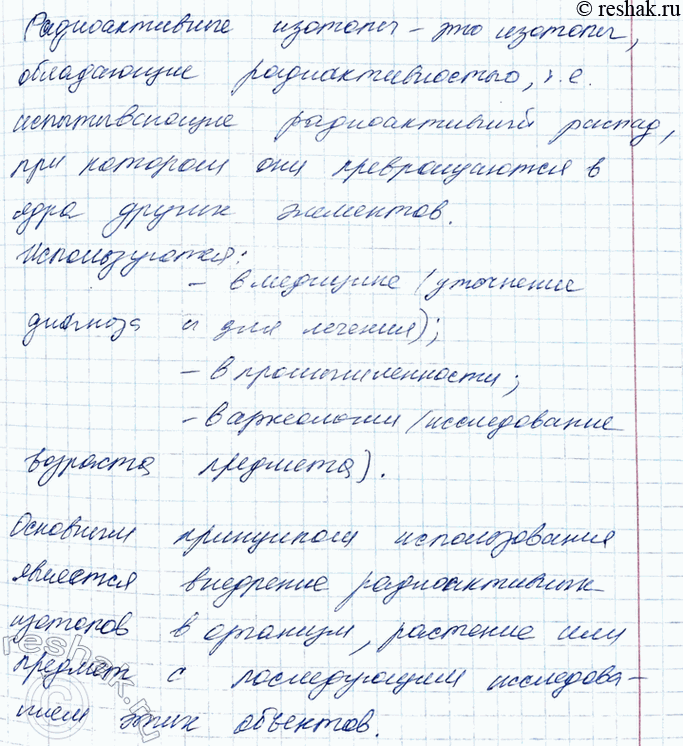 © reshak.ru
Радиоактивные изотопы - это изотопы,
обладающие радиактивностью, т.е.
испытывающие радиоактивный распад,
при котором они превращаются в
ядра других элементов.
Используются:
- в медицине (уточнение
диагноза и для лечения);
- в промышленности;
- в археологии (исследование
возраста предмета).
Основным принципом использования
является внедрение радиоактивных
изотопов в организм, растение или
предмет с последующим исследова-
нием этих объектов.
reshak.ru
©